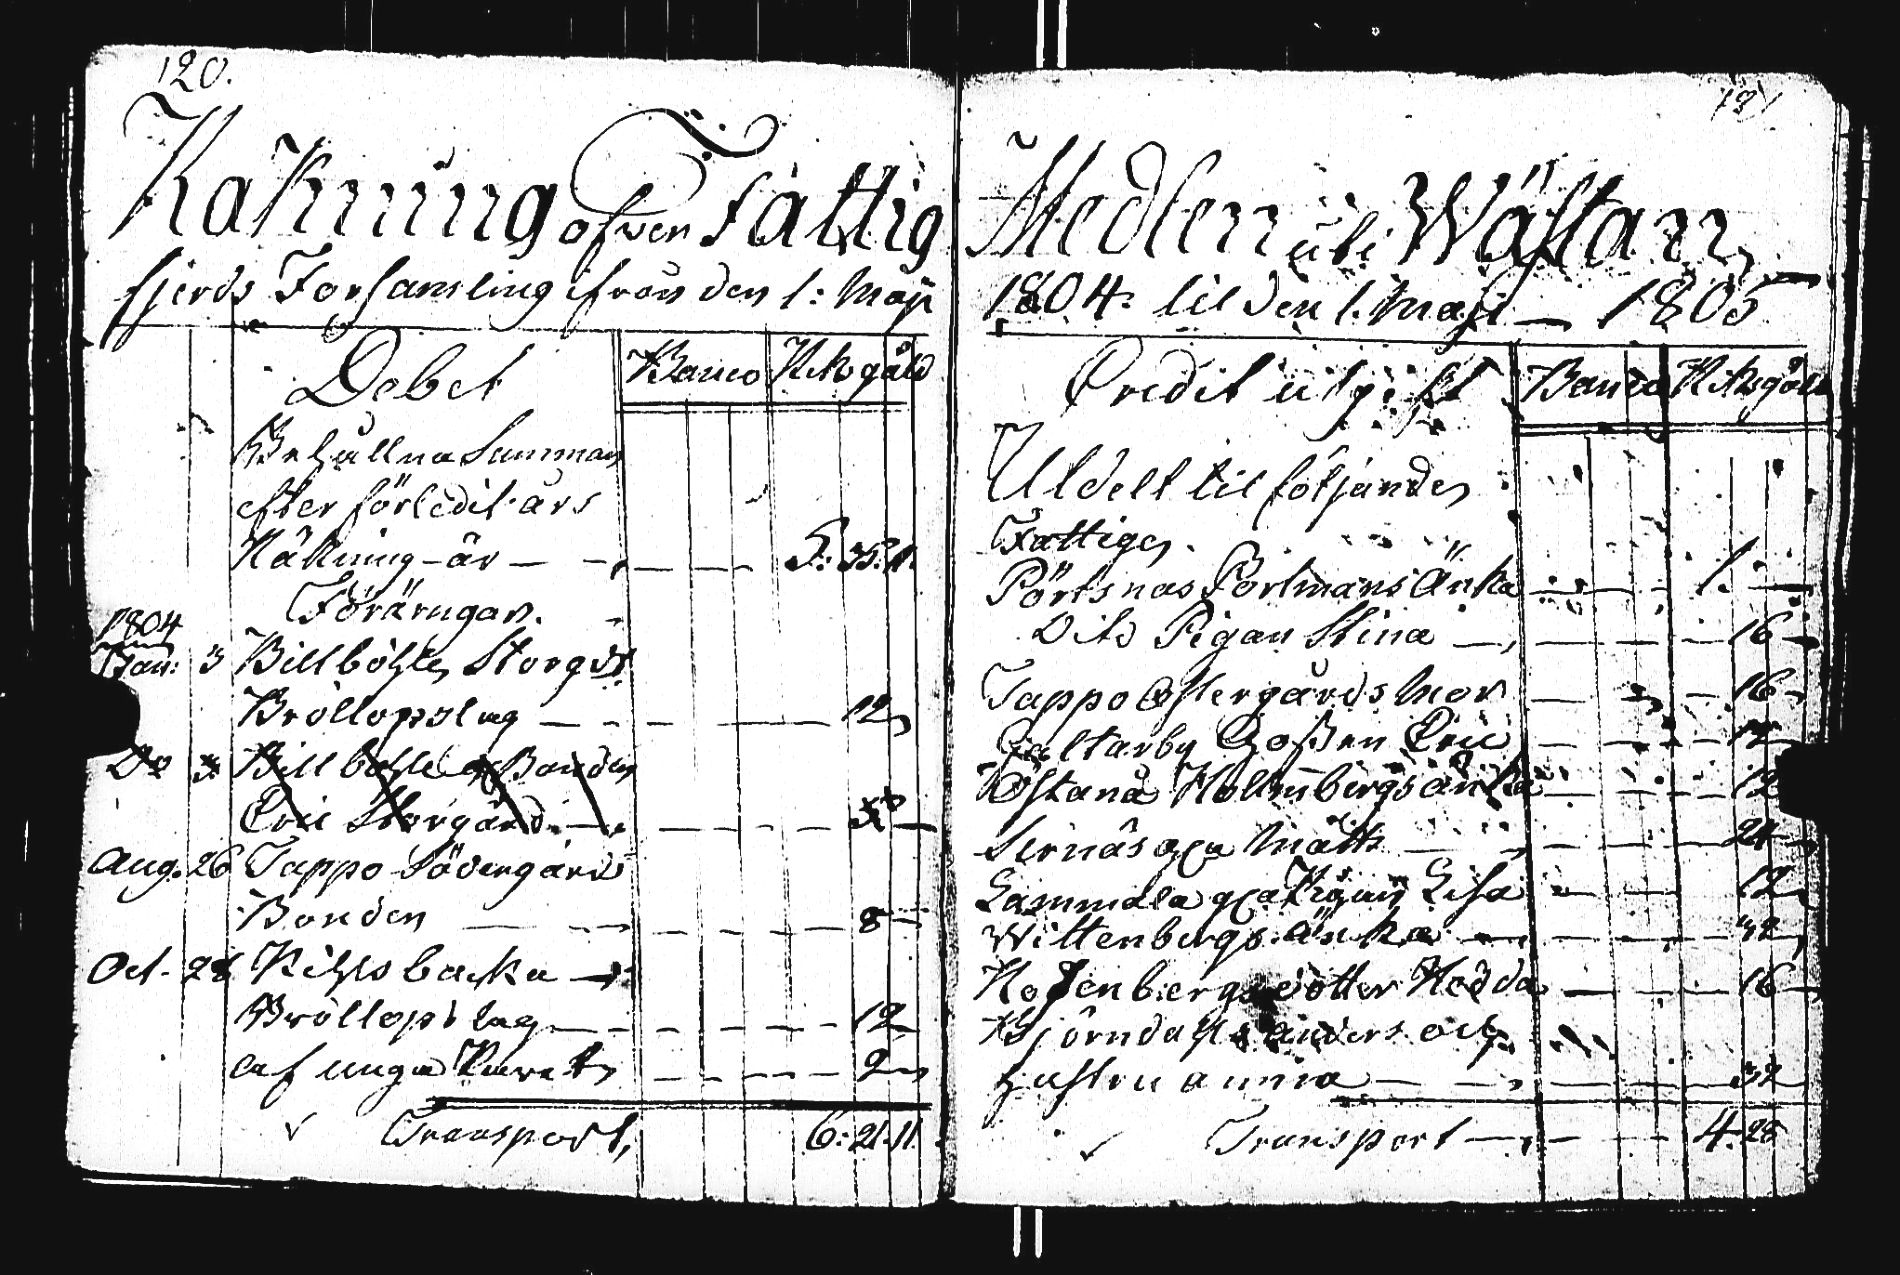 120.
Räkning öfver Fattig
fjerds Församling ifrån den 1: Maji
Debet Banco Riksgäld
Behållna Summan
efter förledit års
Räkning är 5: 35. 11.
Föräringar.
1804
Jan: 3 Billböhle Storgds
Bröllopslag 12
Do 3 Billböhle Bonden
Eric Storgård
Aug. 26 Tappo Södergårds
Bonden 8
Oct. 28 backa
Bröllops lag 12
af unga 2
Transport, 6: 21. 11.
121
Medlen uti Wåstan
1804. til den 1. Maji 1805
Credit utgift Banco Riksgäld
Utdelt til följande
Fattige.
Pörtsnäs Portmans Änka 1.
Dito Pigan Stina 16
Tappo Östergårds Mor 16
Galtarby Eric 12
Östanå Holmbergs änka 12
Sirnäs gla Matts 24
Gammala gla Pigan Lisa 12
Wittenbergs Änka 32
Rosenbergs dotter Hedda 16
Björndahls Anders och
hustru Anna 32
Transport 4. 28